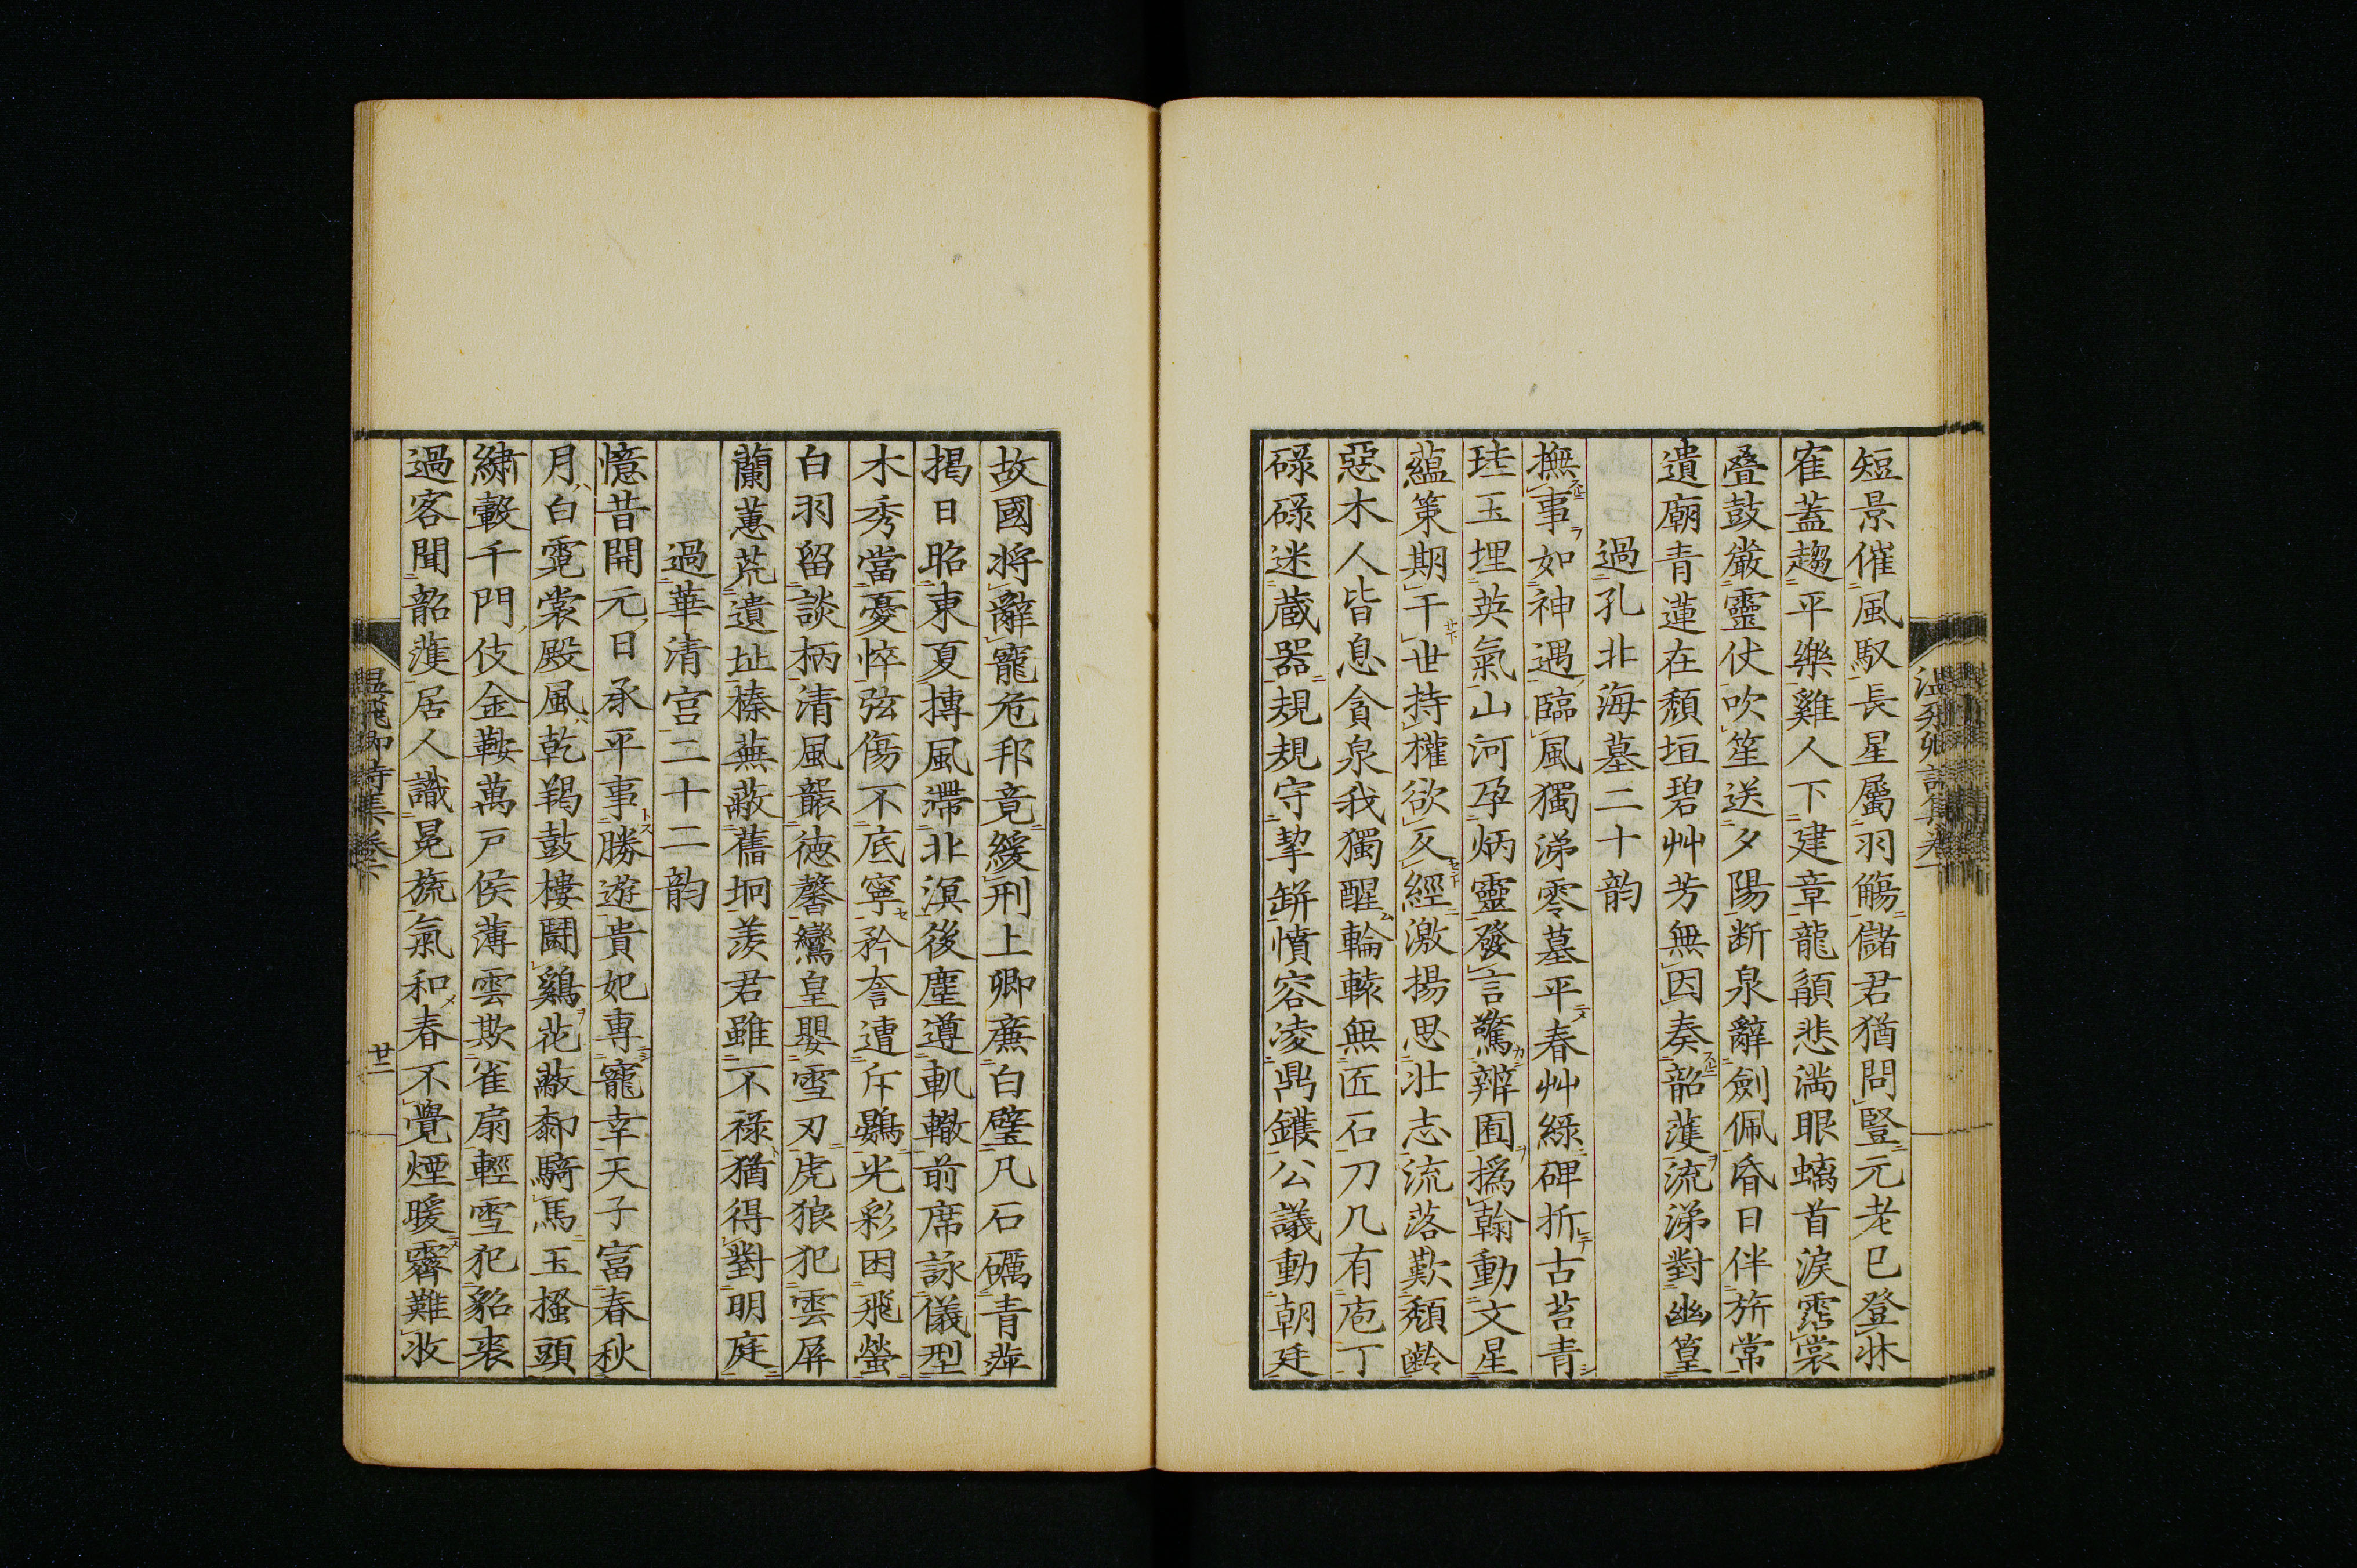 短景催風馭長星屬羽觴儲君猶問豎元老已登牀
寉蓋趨平樂雞人下建章龍顓悲滿眼螭首淚霑裳
疊鼓嚴靈仗吹笙送夕陽断泉辭劍佩昏日伴旂常
遺廟青蓮在頹垣碧艸芳無因奏韶濩流涕對幽篁
過孔北海墓二十韵
撫事如神遇臨風獨涕零墓平春艸綠碑折古苔青
珪玉埋英氣山河孕炳靈發言驚辨囿撝翰動文星
蘊策期干世持權欲反經激揚思壯志流落歎頹齡
惡木人皆息貪泉我獨醒輪轅無匠石刀几有庖丁
碌碌迷蔵器規規守挈缾憤容凌鼎鑊公議動朝廷
故國將辭寵危邦竟緩刑上卿䕠白璧凡石礪青萍
揭日昭東夏摶風滯北溟後塵遵軌轍前席詠儀型
木秀當憂悴弦傷不底寧矜夸遭斥鷃光彩困飛螢
白羽留談柄清風襲徳馨鸞皇嬰雪刃虎狼犯雲屏
蘭蕙荒遺址榛蕪蔽舊坰羨君雖不祿猶得對明庭
過華清宮二十二韵
憶昔開元日承平事勝遊貴妃專寵幸天子富春秋
月白霓裳殿風乾羯鼓樓鬪鷄花蔽䣛騎馬玉搔頭
繡轂千門伎金鞍萬戸侯薄雲欺雀扇輕雪犯貂裘
過客聞韶濩居人識冕旒氣和春不覺煙暖霽難收
温飛卿詩集卷
廿二